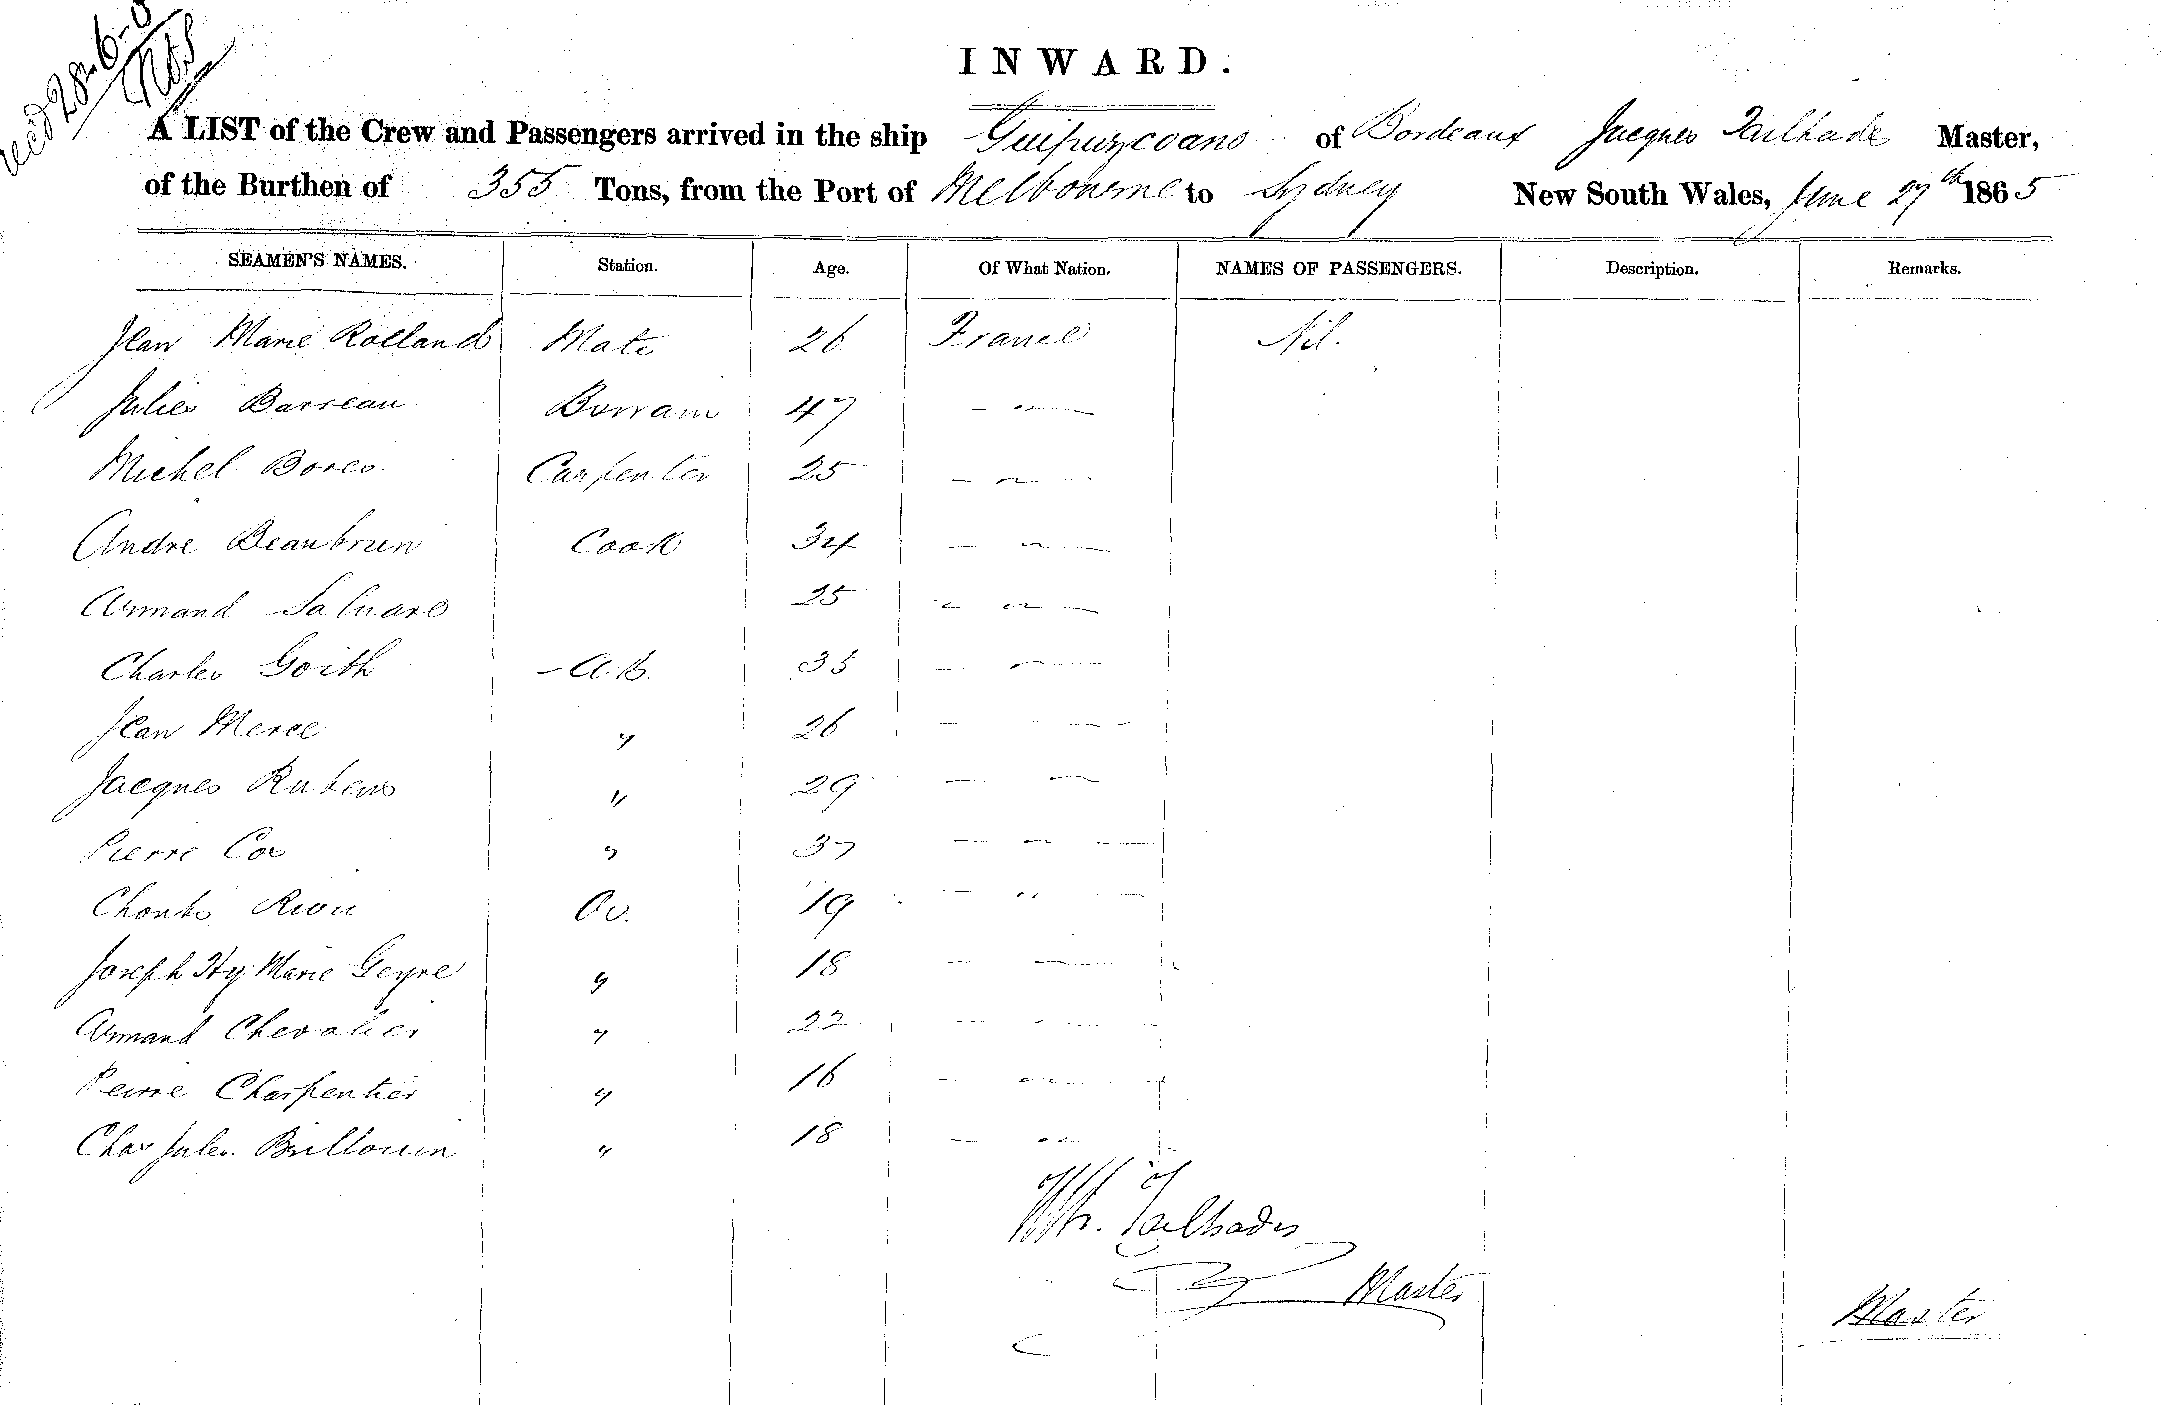 recd 28-6-
INWARD.
A LIST of the Crew and Passengers arrived in the ship Guipuzcoano of Bordeaux Jacques Tailhade Master,
of the Burthen of 355 Tons, from the Port of Melbourne to Sydney New South Wales, June 27th 1865
SEAMEN'S NAMES. Station. Age. Of What Nation. NAMES OF PASSENGERS. Description. Remarks.
Jean Marie Rolland Mate 26 France Nil.
Jules Barreau 47 — " —
Michel Carpenter 25 — " —
Andre Beaubrun Cook 34 — " —
Armand 25 — " —
Charles Goith A.B. 35 — " —
Jean Merce " 26 — " —
Jacques Rubens " 29 — " —
Pierre " 37 — " —
Riou 19 — " —
Joseph Hy Marie Geyre " 18 — " —
Armand Chevalier " 22 — " —
Peirre Charpentier " 16 — " —
Chas Jules Brillouin " 18 — " —
Tailhade
Master
Master